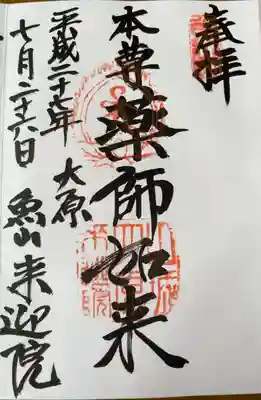 奉拝
本尊薬師如来
平成二十七年 大原
七月二十六日 魚山来迎院